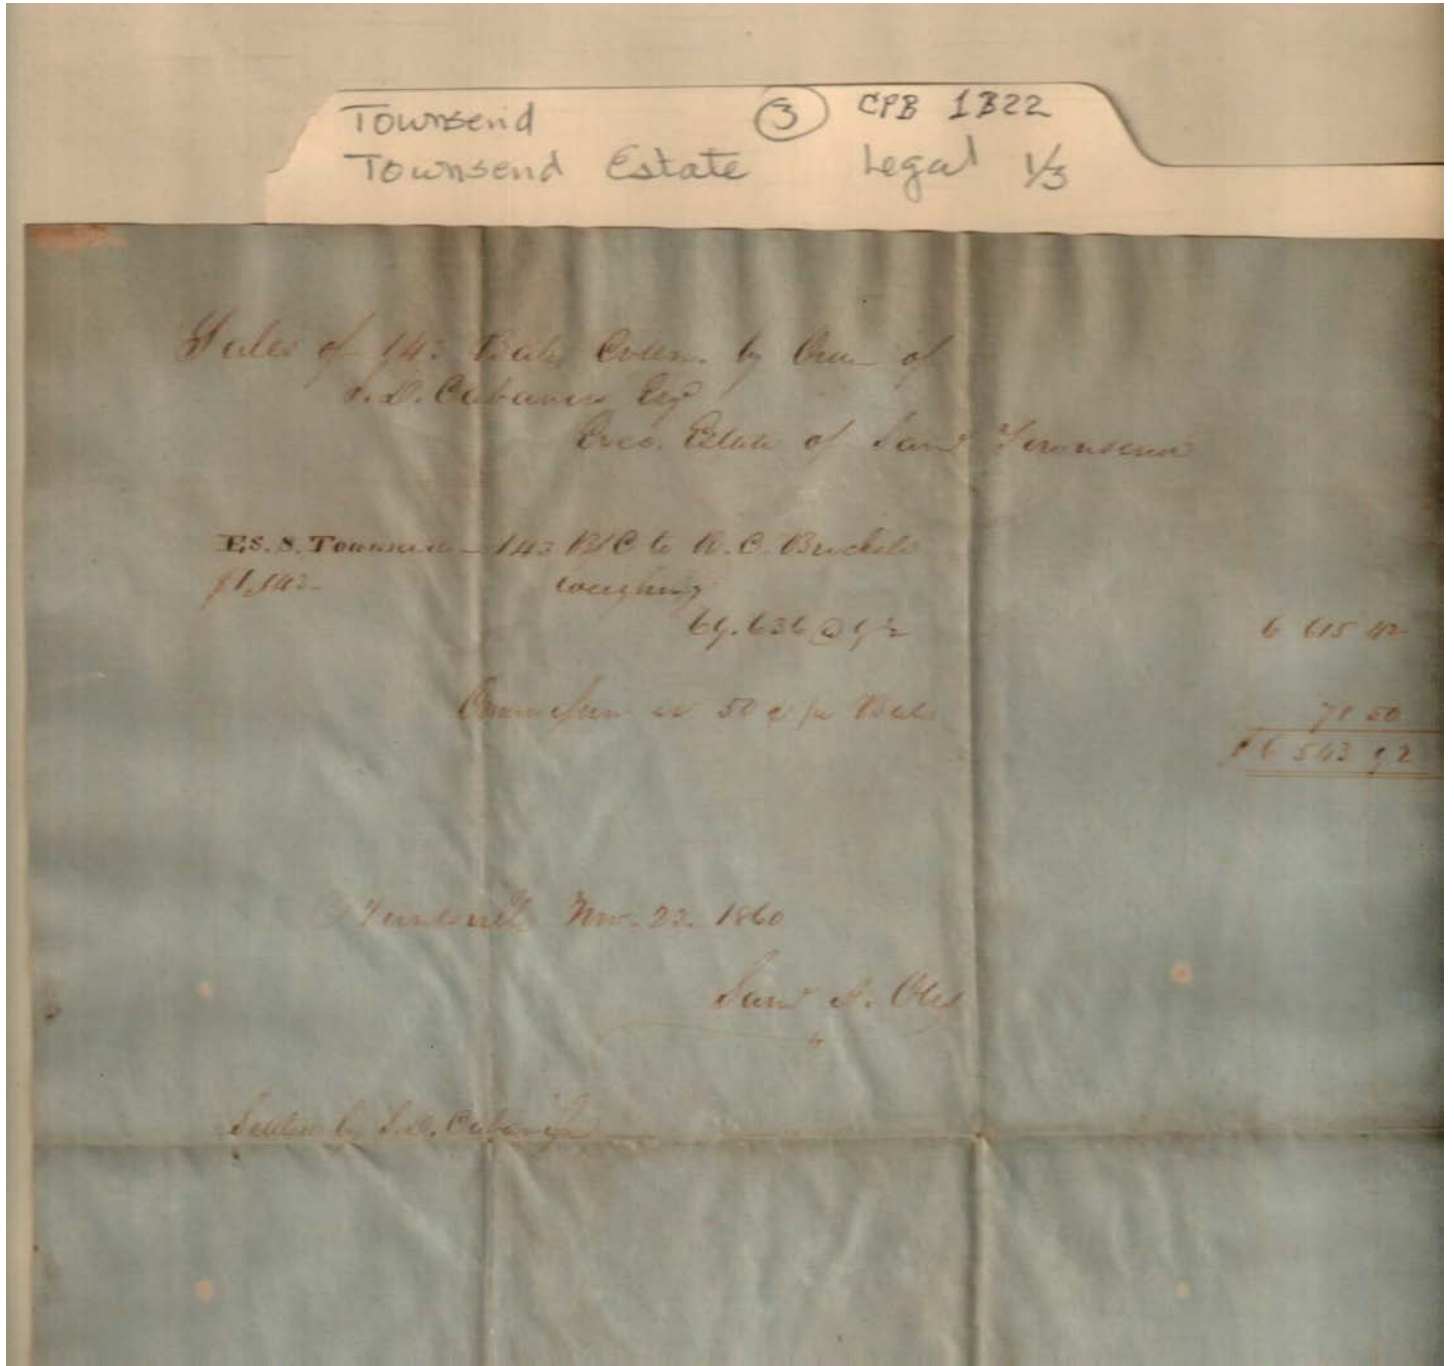 Townsend ③ CPB 1B22
Townsend Estate Legal 1/3
Sales of 143 Bales Cotton by Order of
S. D. Cabaniss Esq
Exec. Estate of Saml Townsend
ES. S. Townsend - 143 B/C to
weighing
69.636 @ 9½
6 615 42
Commission at 50 c per Bale
71 50
$ 6 543 92
Huntsville Nov. 23. 1860
Saml
S. D. Cabaniss